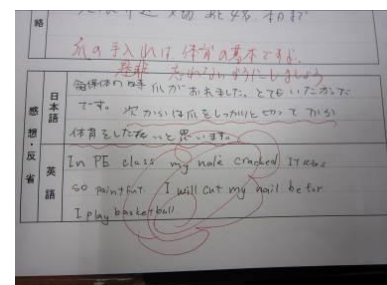 絡
爪の手入れは、体育の基本ですよ。
忘れないようにしましょう
感想・反省
日本語
爪がおれました。とてもいたかった
です。次からは爪をしっかりと切ってから
体育をしたいと思います。
英語
In PE class my nale cracked It was
so painful I will cut my nail befor
I play basketball